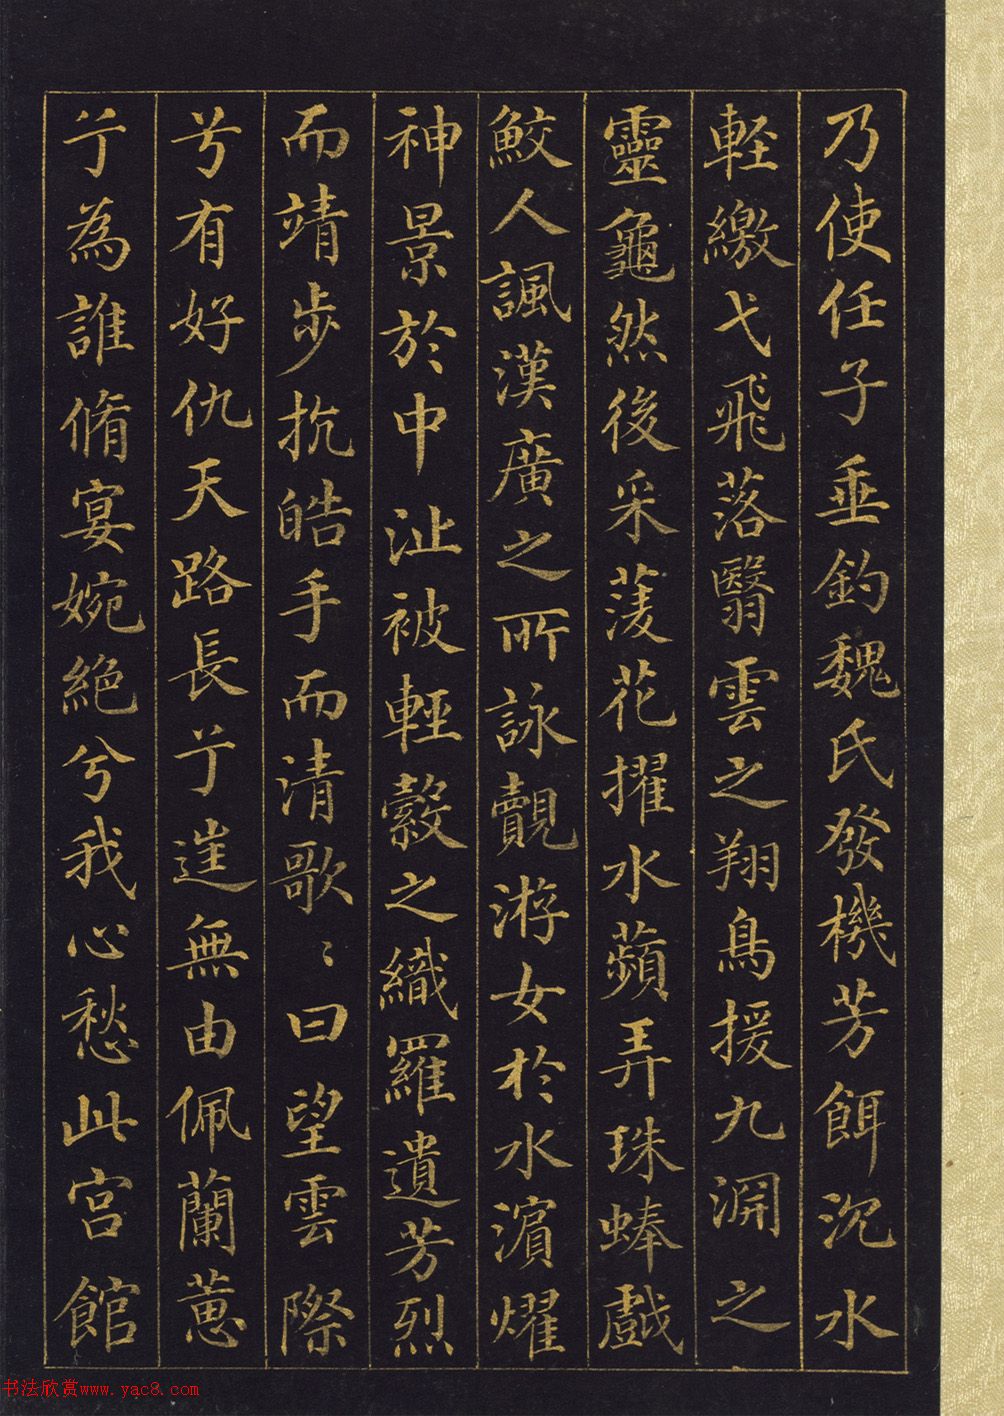 乃使任子垂釣魏氏發機芳餌沉水
輕繳弋飛落翳雲之翔鳥援九淵之
靈龜然後采菱花擢水蘋弄珠蜯戲
鮫人諷漢廣之所詠覿游女於水濱燿
神景於中沚被輕縠之纖羅遺芳烈
而靖步抗皓手而清歌〻曰望雲際
兮有好仇天路長兮往無由佩蘭蕙
兮為誰脩宴婉絕兮我心愁此宮館
书法欣赏www.yac8.com